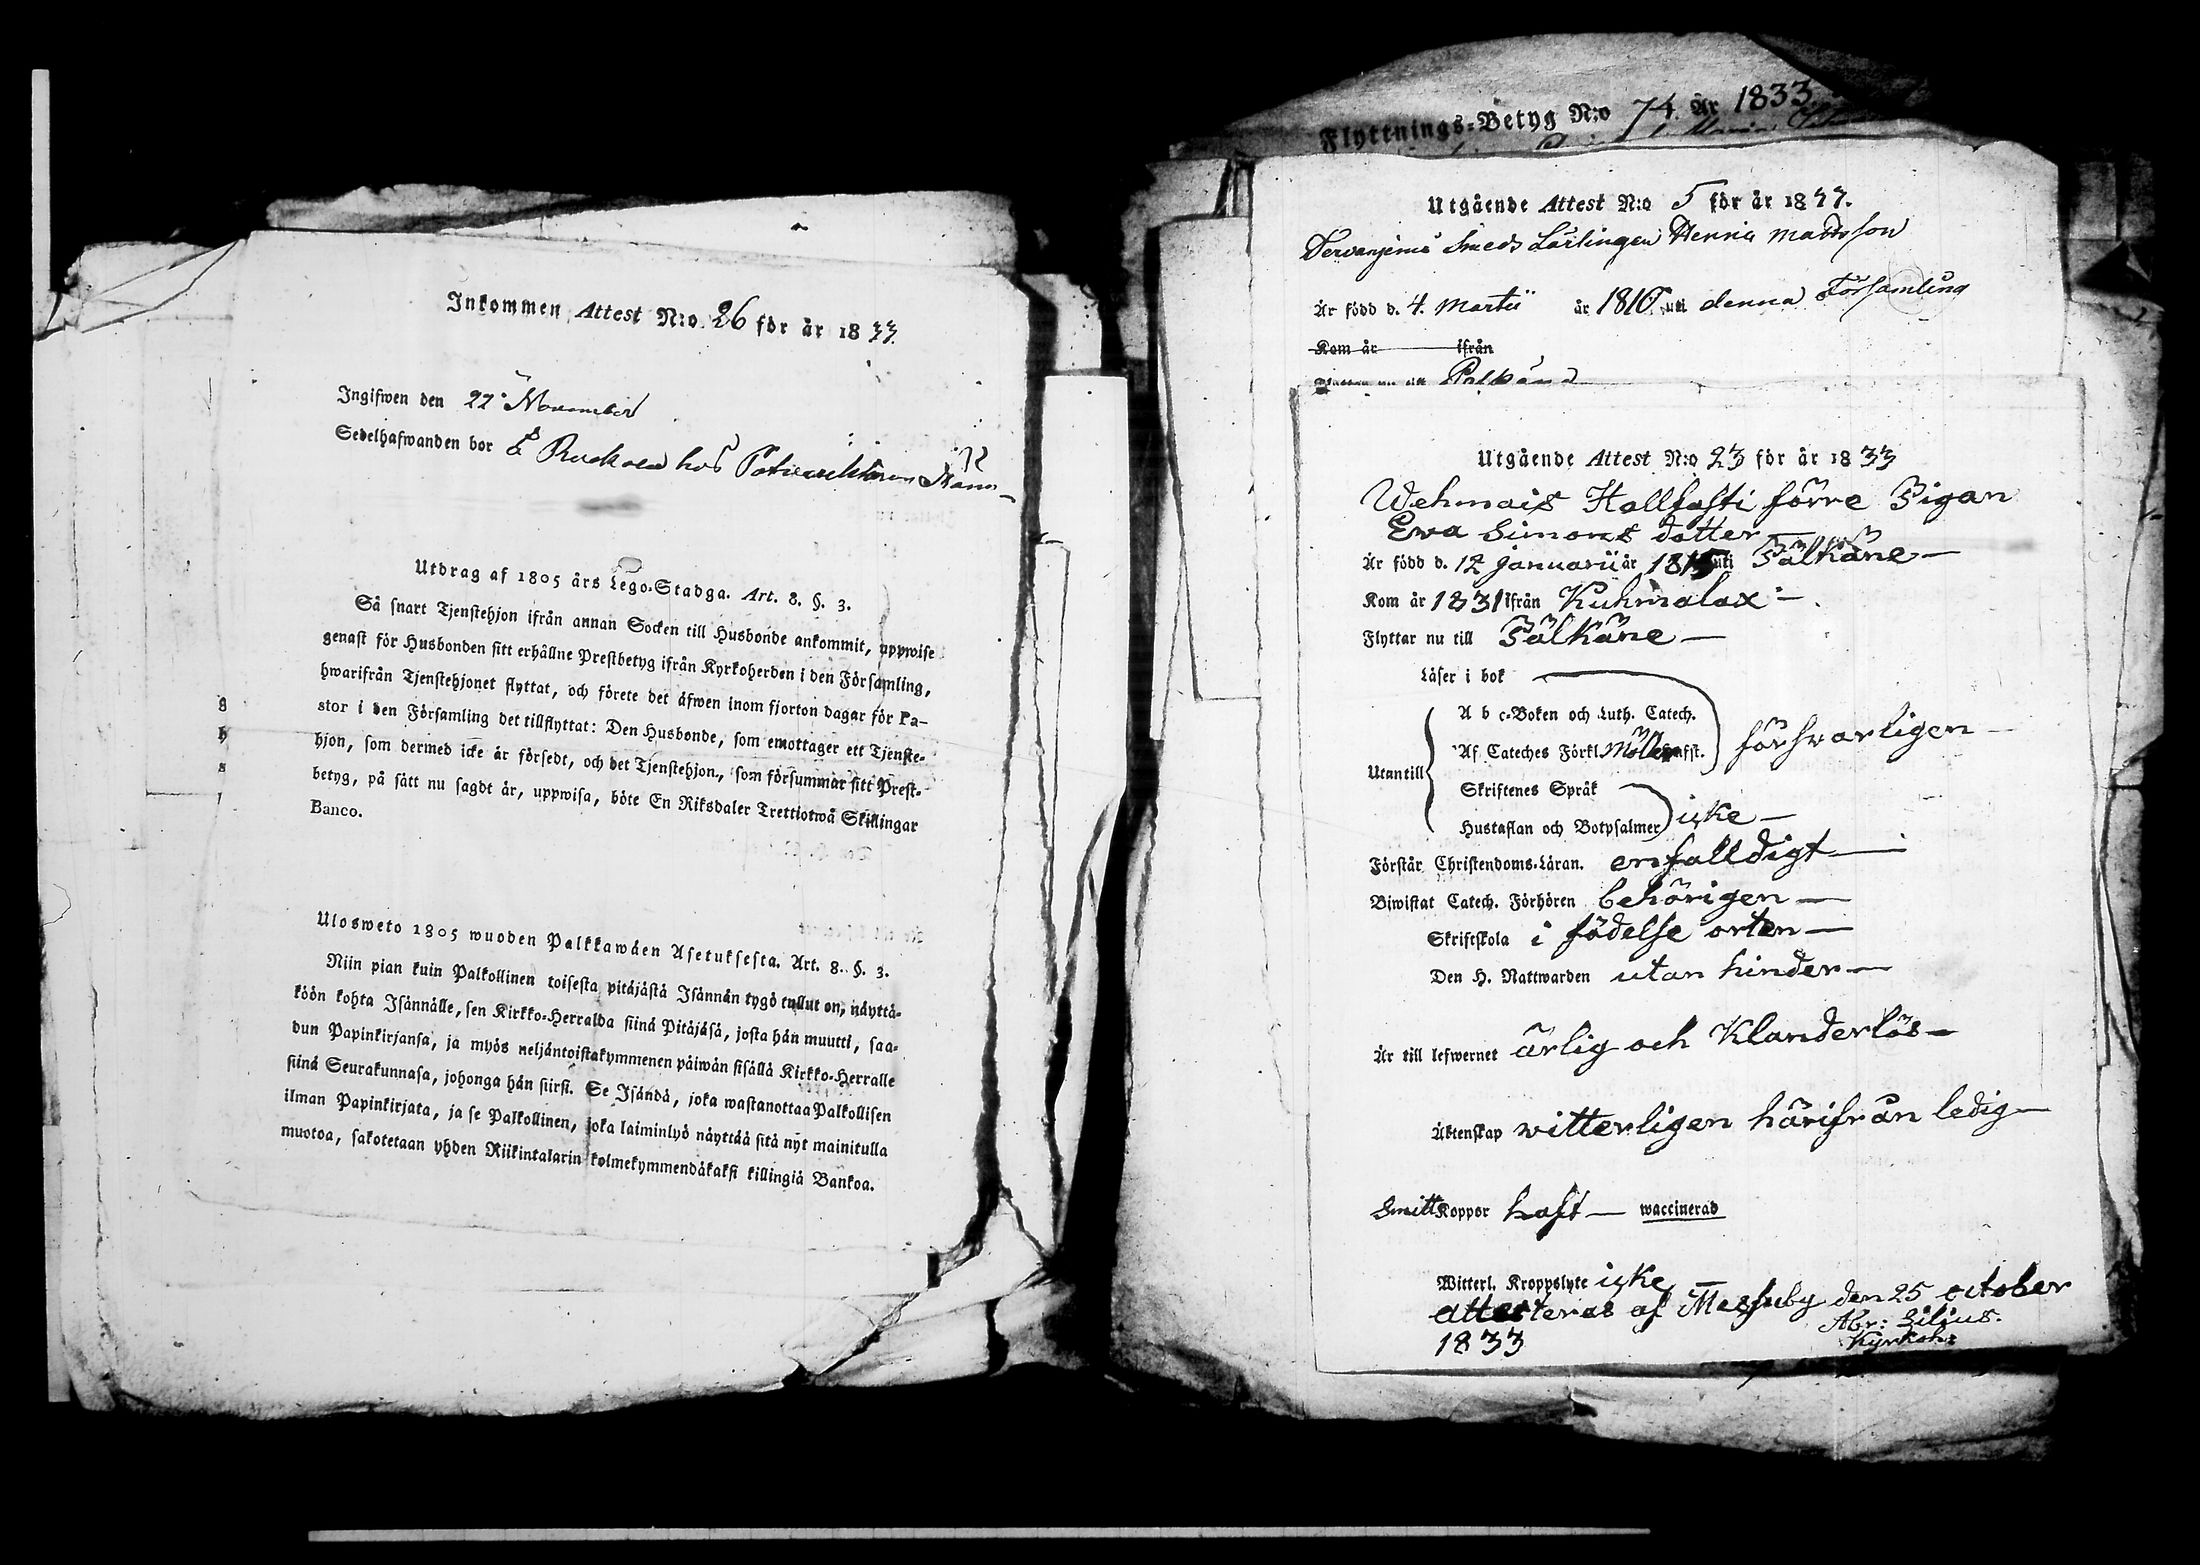 Inkommen Attest N:o 26 för år 1833.
Ingifwen den 22 November
Sedelhafwanden bor å hos
Utdrag af 1805 års Lego-Stadga. Art. 8. §. 3.
Så snart Tjenstehjon ifrån annan Socken till Husbonde ankommit, uppwise
genast för Husbonden sitt erhållne Prestbetyg ifrån Kyrkoherden i den Församling,
hwarifrån Tjenstehjonet flyttat, och förete det äfwen inom fjorton dagar för Pa-
stor i den Församling det tillflyttat: Den Husbonde, som emottager ett Tjenste-
hjon, som dermed icke är försedt, och det Tjenstehjon, som försummar sitt Prest-
betyg, på sätt nu sagdt är, uppwisa, böte En Riksdaler Trettiotwå Skillingar
Banco.
Ulosweto 1805 wuoden Palkkawäen Asetuksesta. Art. 8. §. 3.
Niin pian kuin Palkollinen toisesta pitäjästä Isännän tygö tullut on, näyttä-
köön kohta Isännälle, sen Kirkko-Herralda siinä Pitäjäsä, josta hän muutti, saa-
dun Papinkirjansa, ja myös neljäntoistakymmenen päiwän sisällä Kirkko-Herralle
siinä Seurakunnasa, johonga hän siirsi. Se Isändä, joka wastanottaa Palkollisen
ilman Papinkirjata, ja se Palkollinen, joka laiminlyö näyttää sitä nyt mainitulla
muotoa, sakotetaan yhden Riikintalarin kolmekymmendäkaksi killingiä Bankoa.
Flyttnings-Betyg N:o 74 År 1833
Utgående Attest N:o 5 för år 1833.
Smeds Lärlingen Henric Mattsson
Är född d. 4. Martii år 1816 uti denna Församling
Kom år ifrån
Pälkäne
Utgående Attest N:o 23 för år 1833
Wehmais Hallfasti förre Pigan
Ewa Simons dotter
Är född d. 12 Januarii år 1815 uti Pälkäne
Kom år 1831 ifrån Kuhmalax
Flyttar nu till Pälkäne
Läser i bok
A b c-Boken och Luth. Catech.
Af Cateches Förkl. Möllers försvarligen
Utantill
Skriftenes Språk
Hustaflan och Botpsalmer icke
Förstår Christendoms-Läran. enfalldigt
Biwistat Catech. Förhören behörigen
Skriftskola i födelse orten
Den H. Nattwarden utan hinder
Är till lefwernet ärlig och Klanderlös
Äktenskap witterligen härifrån ledig
Smittkoppor haft waccinerad
Witterl. Kroppslyte icke
attesteras af Messuby den 25 october
1833 Abr: Lilius.
Kyrkoh: